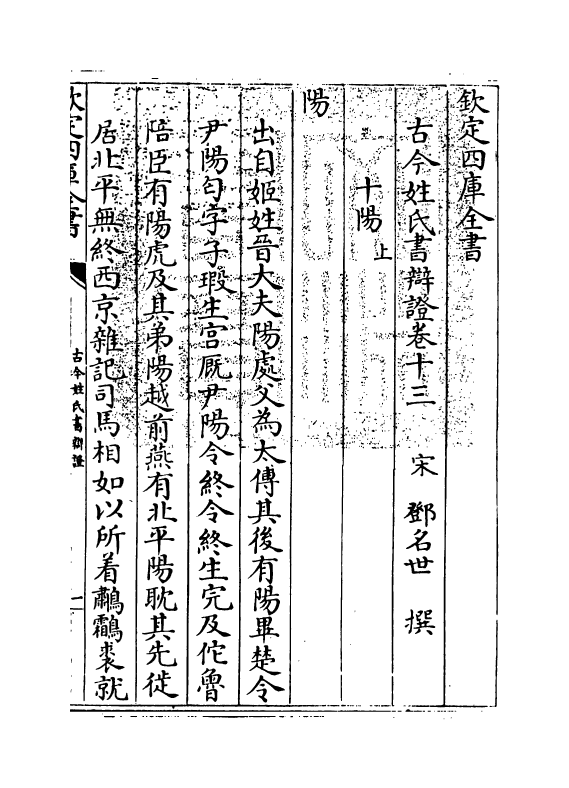 欽定四庫全書
古今姓氏書辯證卷十三　宋　鄧名世　撰
十陽上
陽
出自姬姓晉大夫陽處父為太傅其後有陽畢楚令
尹陽匄字子瑕生宫廐尹陽令終令終生完及佗魯
陪臣有陽虎及其弟陽越前燕有北平陽耽其先徙
居北平無終西京雜記司馬相如以所着鷫鸘裘就
欽定四庫全書
古今姓氏書辯證
一